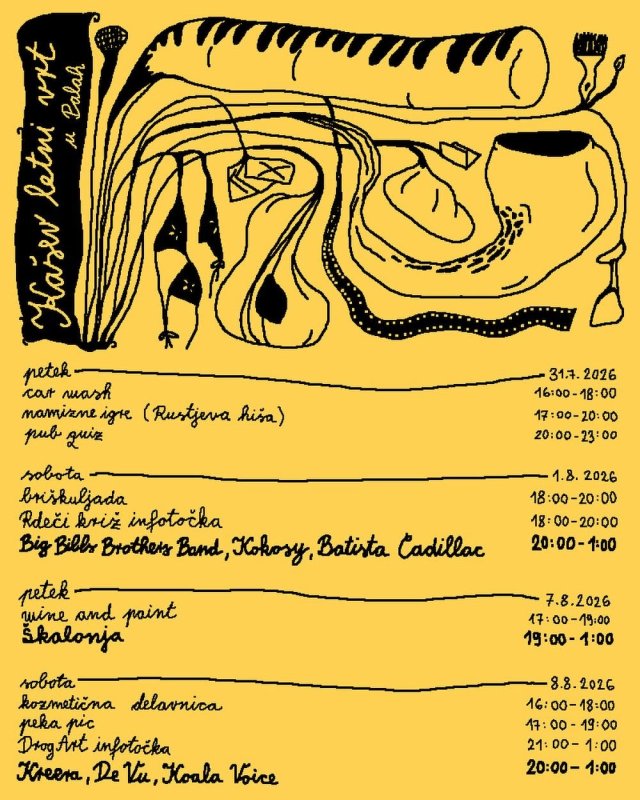 Kašev letni vrt
u Palah
petek 31.7.2026
car wash 16:00-18:00
namizne igre (Rustjeva hiša) 17:00-20:00
pub quiz 20:00-23:00
sobota 1.8.2026
briškuljada 18:00-20:00
Rdeči križ infotočka 18:00-20:00
Big Bibls Brothers Band, Kokosy, Batista Čadillac 20:00-1:00
petek 7.8.2026
wine and paint 17:00-19:00
Škalonja 19:00-1:00
sobota 8.8.2026
kozmetična delavnica 16:00-18:00
peka pic 17:00-19:00
DrogArt infotočka 21:00-1:00
Kreera, De Vu, Koala Voice 20:00-1:00